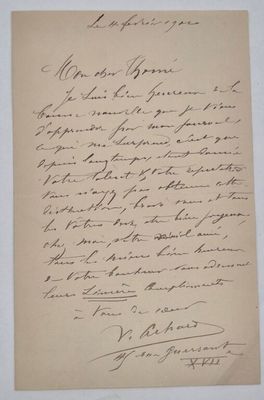 Le 4 février 1902
Mon cher Thomé
Je suis bien heureux de la
bonne nouvelle que je viens
d'apprendre par mon journal,
ce qui me surprend, c'est que
depuis longtemps, étant donné
votre talent & votre réputation
vous n'ayez pas obtenu cette
distinction, vous et tous
les vôtres devez être bien joyeux
chez moi, votre vieil ami,
tous les miens bien heureux
de votre bonheur vous adressent
leurs sincères compliments
à vous de cœur
V. Achard
rue Guersant
XVII